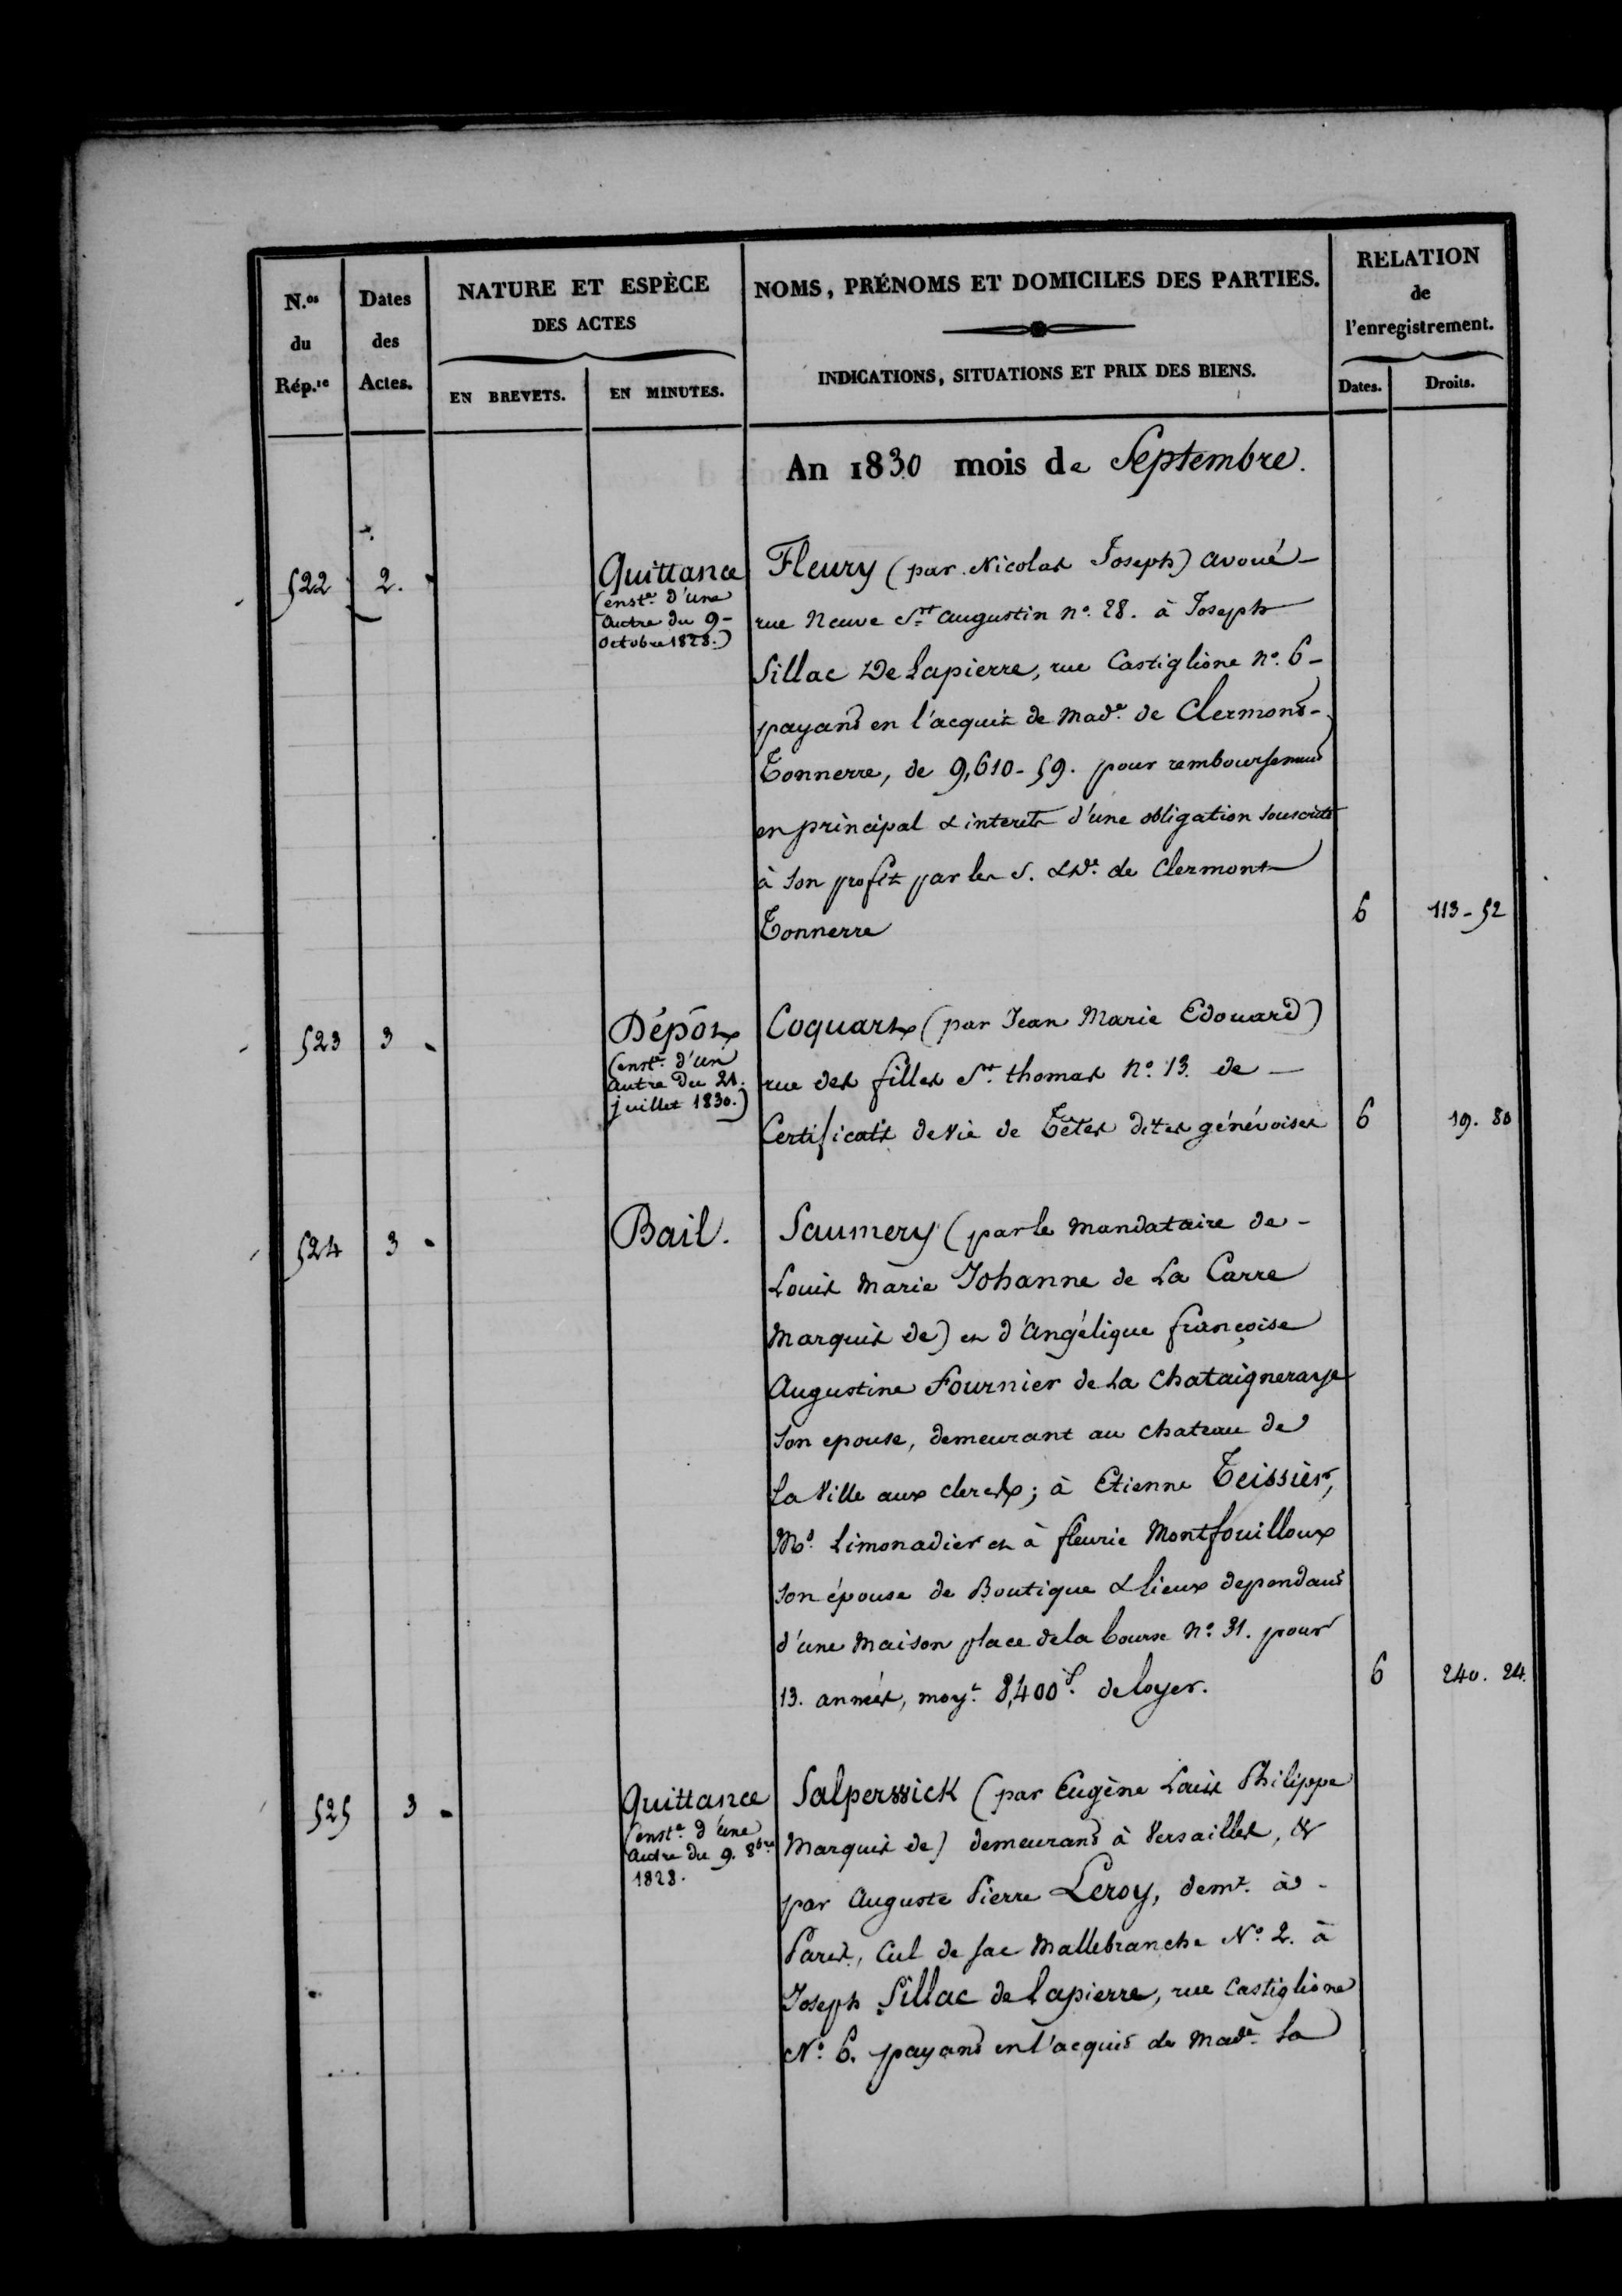 N.os du Rép.re
Dates des Actes.
NATURE ET ESPÈCE DES ACTES
EN BREVETS.
EN MINUTES.
NOMS, PRÉNOMS ET DOMICILES DES PARTIES.
INDICATIONS, SITUATIONS ET PRIX DES BIENS.
RELATION de l'enregistrement.
Dates.
Droits.
An 1830 mois de Septembre.
522
2.
Quittance
(enste d'une
autre du 9-
octobre 1828.)
Fleury (par Nicolas Joseph) avoué -
rue Neuve St augustin no. 28. à Joseph
Sillac De Lapierre, rue Castiglione no. 6 -
payant en l'acquit de Made. de Clermont-
Tonnerre, de 9,610-59. pour remboursement
en principal & interets d'une obligation souscrite
à son profit par les S. & De. de Clermont
Tonnerre
6
113-52
523
3
Dépôt
(enste d'un
autre du 21.
juillet 1830.)
Coquart (par Jean Marie Edouard)
rue des filles St. thomas No. 13. de -
Certificats de vie de Têtes dites génévoises
6
19. 80
524
3
Bail.
Saumery (par le mandataire de -
Louis Marie Johanne de La Carre
Marquis de) et d'Angélique françoise
Augustine Fournier de la Chataigneraye
son epouse, demeurant au chateau de
la Ville aux clercs; à Etienne Teissier,
Md. Limonadier et à fleurie Montfouilloux
son épouse de Boutique & lieux dependant
d'une maison place de la bourse No. 31. pour
13. années, moyt. 8,400f. de loyer.
6
240. 24.
525
3
Quittance
(enste. d'une
autre du 9. 8bre
1828.
Salperwick (par Eugène Louis Philippe
Marquis de) demeurant à Versailles, &
par Auguste Pierre Leroy, demt. à -
Paris, Cul de sac Mallebranche No. 2. à
Joseph Sillac de Lapierre, rue Castiglione
No. 6. payant en l'acquit de Made. la